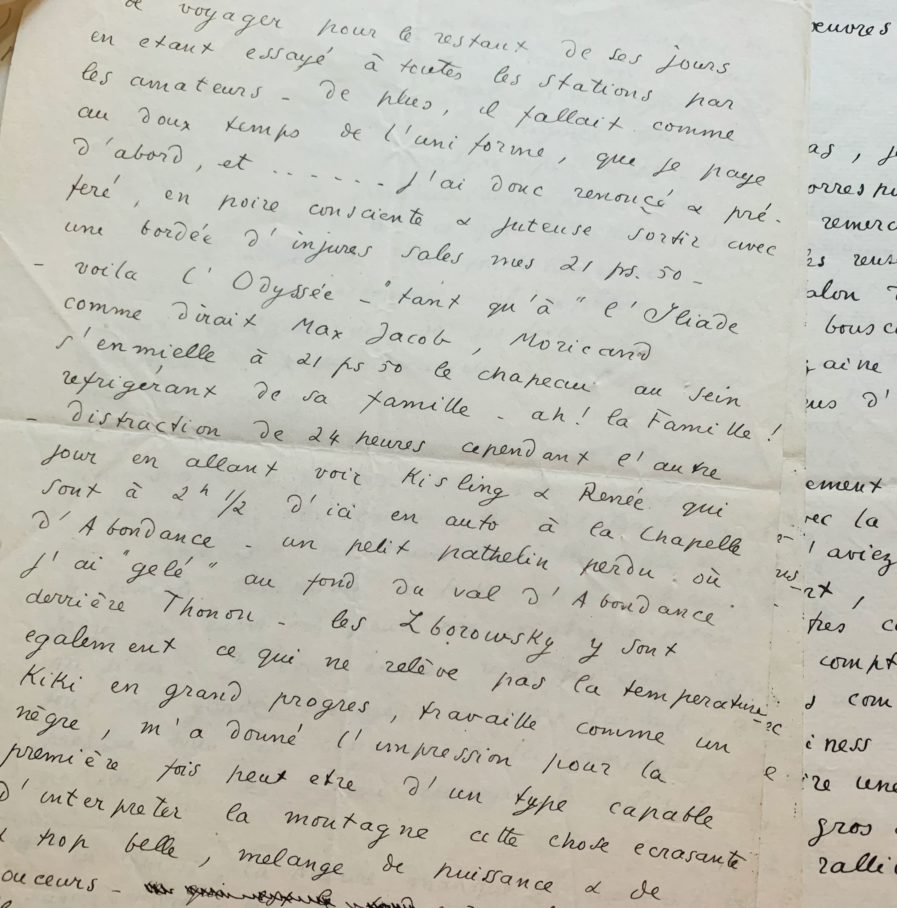 de voyager pour le restant de ses jours
en etant essayé à toutes les stations par
les amateurs - de plus, il fallait comme
au doux temps de l'uniforme, que je paye
d'abord, et ....... j'ai donc renoncé & pré-
feré, en poire consciente & juteuse sortir avec
une bordée d'injures sales mes 21 ps. 50 -
- voila l'Odyssée - "tant qu'à" l'Iliade
comme dirait Max Jacob, Moricand
s'enmielle à 21 ps 50 le chapeau au sein
refrigérant de sa famille - ah! la Famille!
- distraction de 24 heures cependant l'autre
jour en allant voir Kisling & Renée qui
sont à 2h 1/2 d'ici en auto à la Chapelle
d'Abondance - un petit pathelin perdu où
j'ai "gelé" au fond du val d'Abondance
derrière Thonon - les Zborowsky y sont
egalement ce qui ne relève pas la temperature
Kiki en grand progres, travaille comme un
nègre, m'a donné l'impression pour la
première fois peut etre d'un type capable
d'interpreter la montagne cette chose ecrasante
trop belle, melange de puissance & de
ouceurs -
euvres
as, j
orresp
remerc
alon
bousc
aine
us d'
ement
ec la
l'aviez
comp
com
iness
re une
gros
ralli